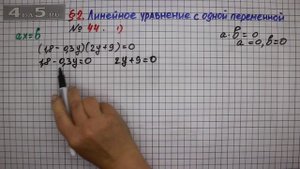 4o5.ru
§2. Линейное уравнение с одной переменной
№ 44. 1)
ax=b
a·b=0
a=0, b=0
(1,8-0,3y)(2y+9)=0
1,8-0,3y=0 2y+9=0